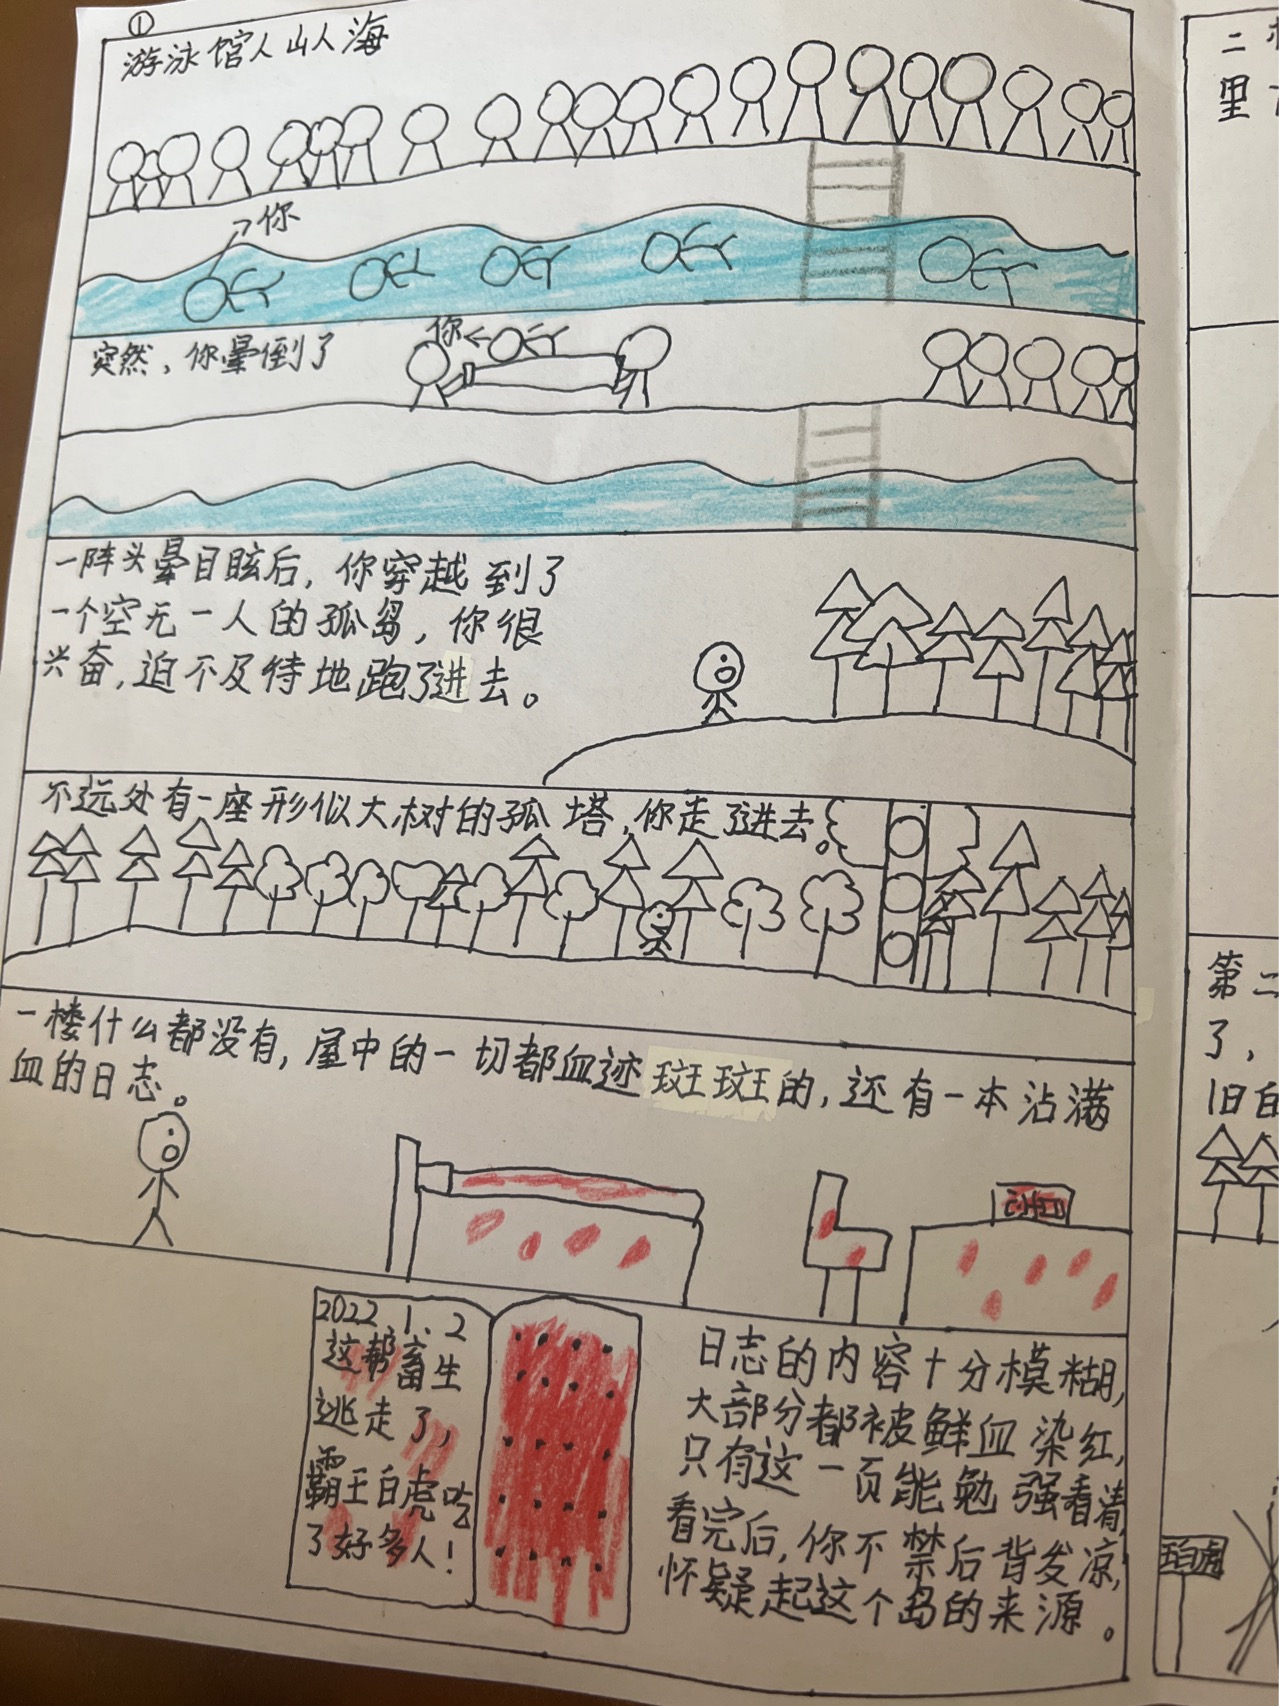 ①
游泳馆人山人海
你
突然，你晕倒了
你
一阵头晕目眩后，你穿越到了
一个空无一人的孤岛，你很
兴奋，迫不及待地跑了进去。
不远处有一座形似大树的孤塔，你走了进去。
一楼什么都没有，屋中的一切都血迹斑斑的，还有一本沾满
血的日志。
2022.1.2
这帮畜生
逃走了，
霸王白虎吃
了好多人！
日志的内容十分模糊，
大部分都被鲜血染红，
只有这一页能勉强看清，
看完后，你不禁后背发凉，
怀疑起这个岛的来源。
二
里
第二
了，
旧白